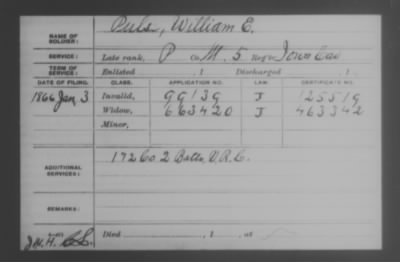 NAME OF SOLDIER: Puls, William E.
SERVICE: Late rank, P Co. M, 5 Reg't Iowa Cav
TERM OF SERVICE: Enlisted , 1 Discharged , 1
DATE OF FILING. CLASS. APPLICATION NO. LAW. CERTIFICATE NO.
1866 Jan. 3 Invalid, 99139 J 125519
Widow, 663420 J 463342
Minor,
ADDITIONAL SERVICES: 172 Co 2 Batts, V.R.C.
REMARKS:
Died , 1 , at